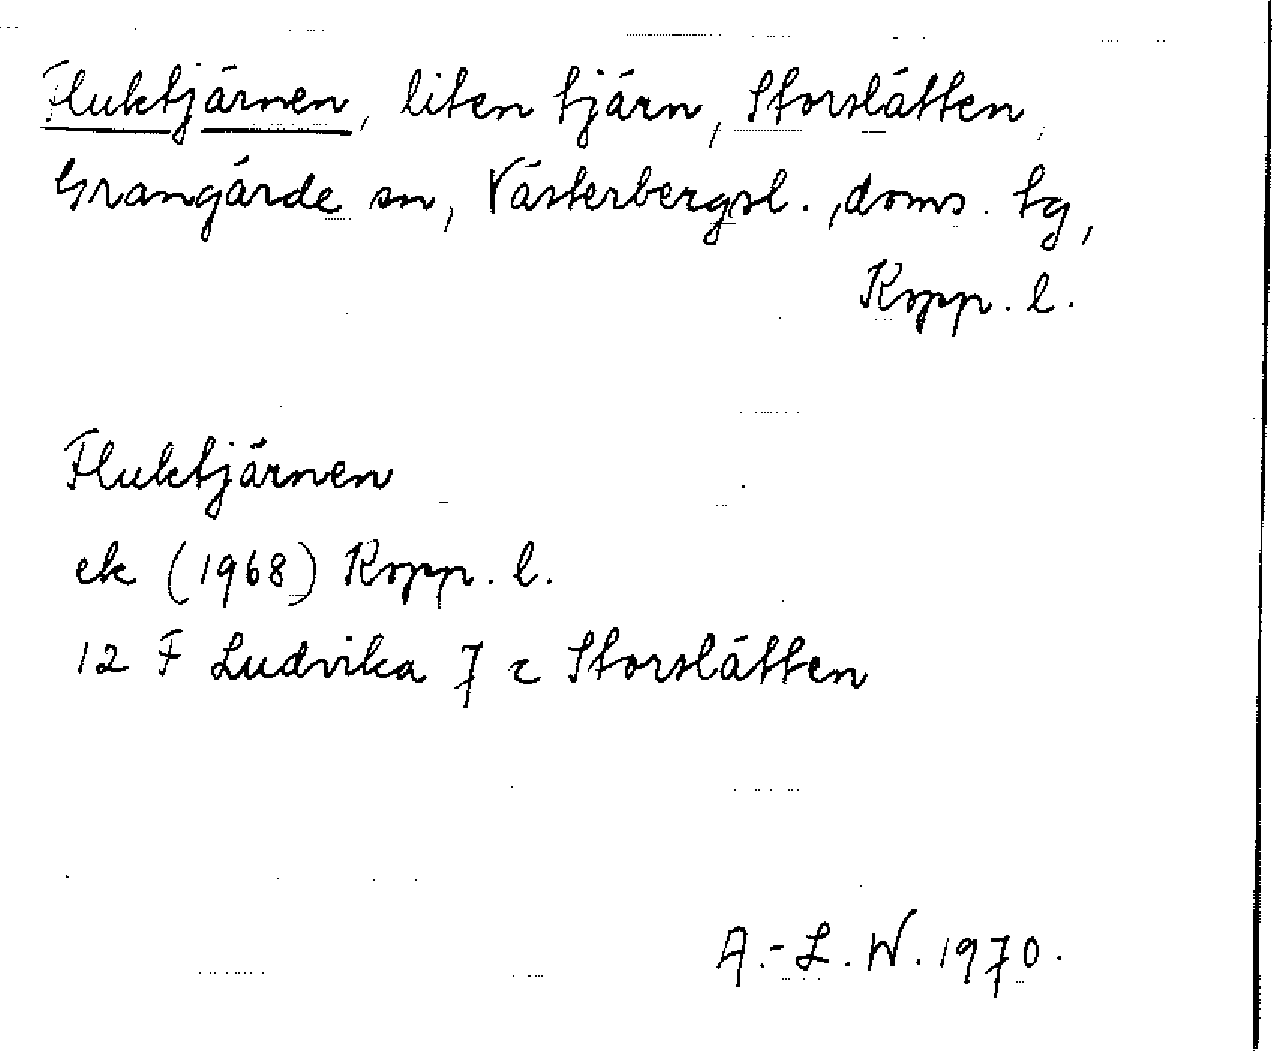 Fluktjärnen, liten tjärn, Storslätten,
Grangärde sn, Västerbergsl., doms. tg,
Kopp. l.
Fluktjärnen
ek (1968) Kopp. l.
12 F Ludvika 7 c Storslätten
A.-L. W. 1970.